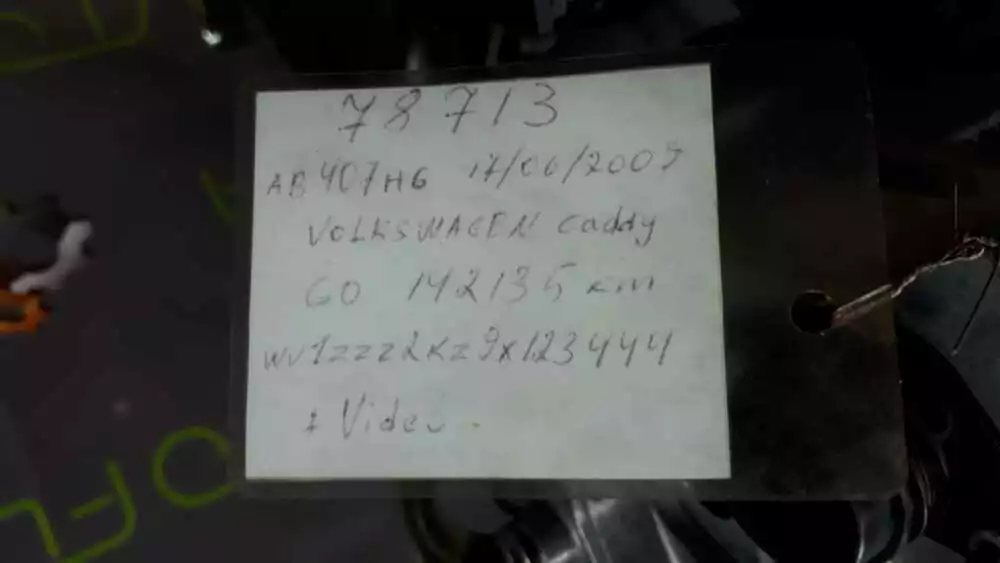 78713
AB407HG 17/06/2009
VOLKSWAGEN caddy
GO 142135 km
WV1ZZZ2KZ9X123444
+ Video.
OFL